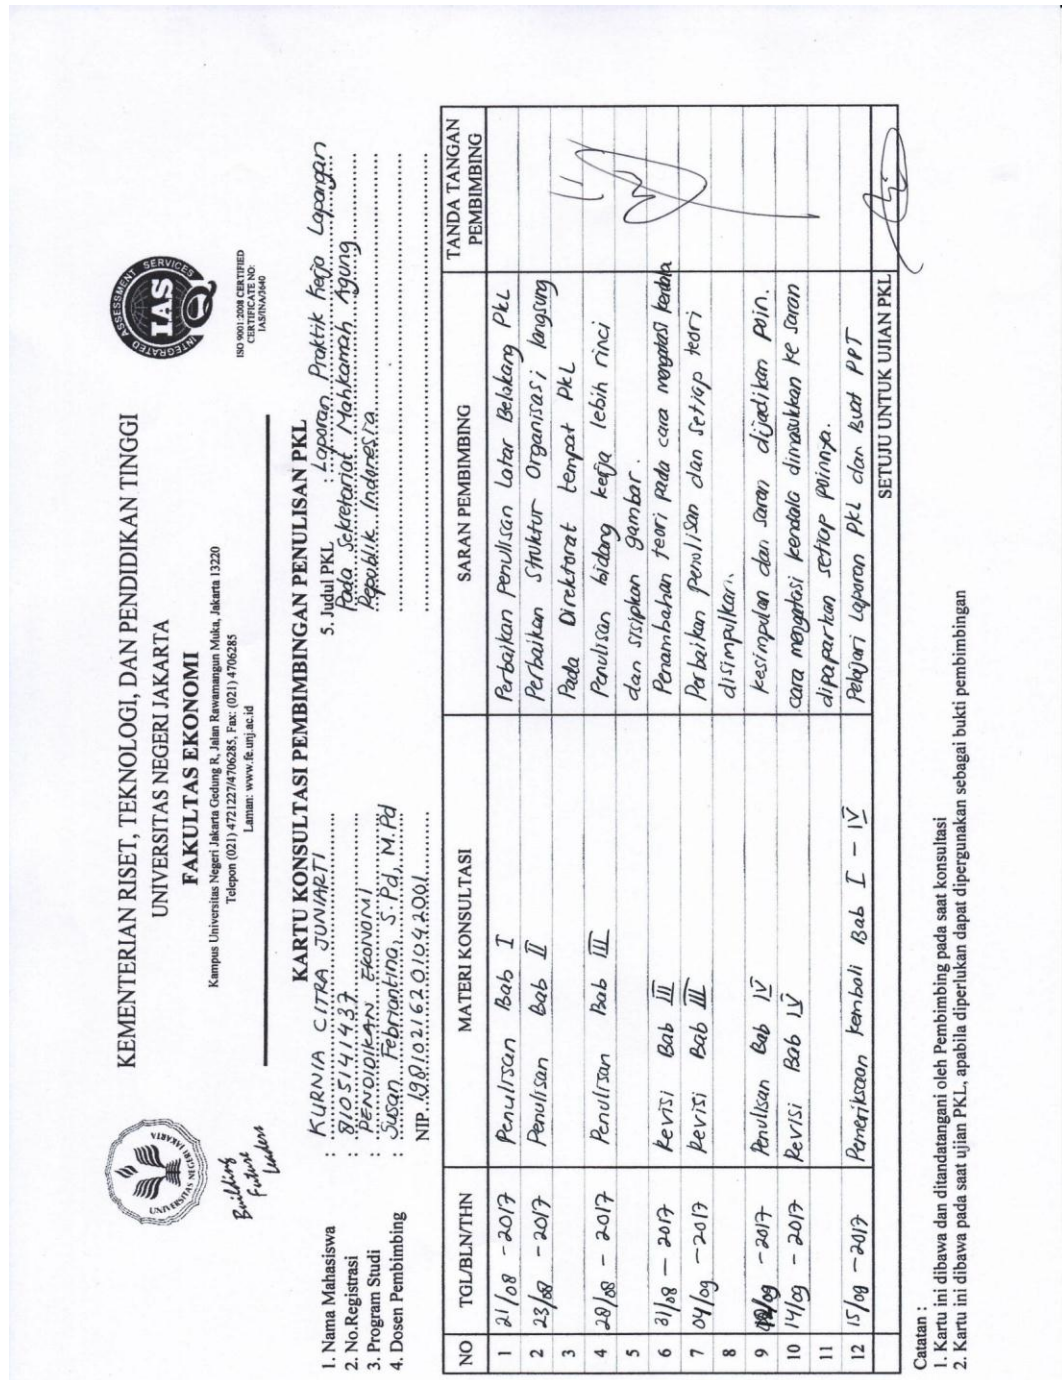 KEMENTERIAN RISET, TEKNOLOGI, DAN PENDIDIKAN TINGGI
UNIVERSITAS NEGERI JAKARTA
FAKULTAS EKONOMI
Kampus Universitas Negeri Jakarta Gedung R, Jalan Rawamangun Muka, Jakarta 13220
Telepon (021) 4721227/4706285, Fax: (021) 4706285
Laman: www.fe.unj.ac.id
UNIVERSITAS NEGERI JAKARTA
Building
Future
Leaders
INTEGRATED ASSESSMENT SERVICES
IAS
ISO 9001:2008 CERTIFIED
CERTIFICATE NO:
IAS/INA/3640
KARTU KONSULTASI PEMBIMBINGAN PENULISAN PKL
1. Nama Mahasiswa : KURNIA CITRA JUNIARTI
2. No.Registrasi : 8105141437
3. Program Studi : PENDIDIKAN EKONOMI
4. Dosen Pembimbing : Susan Febriantina, S.Pd., M.Pd
NIP. 19810216201042001
5. Judul PKL : Laporan Praktik Kerja Lapangan
Pada Sekretariat Mahkamah Agung
Republik Indonesia
NO TGL/BLN/THN MATERI KONSULTASI SARAN PEMBIMBING TANDA TANGAN PEMBIMBING
1 21/08 - 2017 Penulisan Bab I Perbaikan Penulisan Latar Belakang PKL
2 23/08 - 2017 Penulisan Bab II Perbaikan Struktur Organisasi, langsung
3 Pada Direktorat tempat PKL
4 28/08 - 2017 Penulisan Bab III Penulisan bidang kerja lebih rinci
5 dan sisipkan gambar.
6 31/08 - 2017 Revisi Bab III Penambahan teori pada cara mengatasi kendala
7 04/09 - 2017 Revisi Bab III Perbaikan penulisan dan setiap teori
8 disimpulkan.
9 /09 - 2017 Penulisan Bab IV Kesimpulan dan saran dijadikan poin.
10 14/09 - 2017 Revisi Bab IV cara mengatasi kendala dimasukkan ke saran
11 dipaparkan setiap poinnya.
12 15/09 - 2017 Pemeriksaan kembali Bab I - IV Pelajari Laporan PKL dan buat PPT
SETUJU UNTUK UJIAN PKL
Catatan :
1. Kartu ini dibawa dan ditandatangani oleh Pembimbing pada saat konsultasi
2. Kartu ini dibawa pada saat ujian PKL, apabila diperlukan dapat dipergunakan sebagai bukti pembimbingan